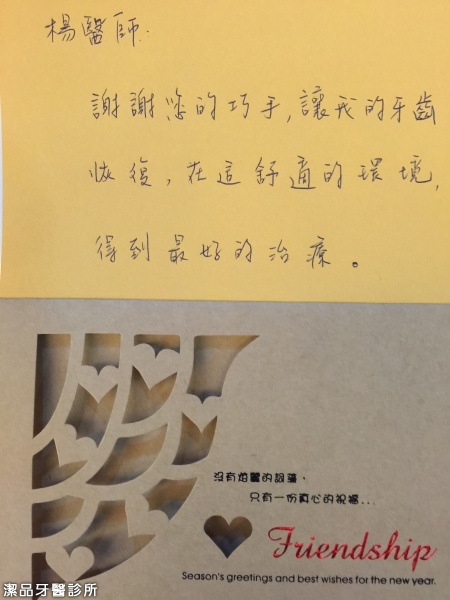 楊醫師:
謝謝您的巧手,讓我的牙齒
恢復,在這舒適的環境,
得到最好的治療。
沒有炫麗的詞藻,
只有一份真心的祝福...
Friendship
Season's greetings and best wishes for the new year.
潔品牙醫診所